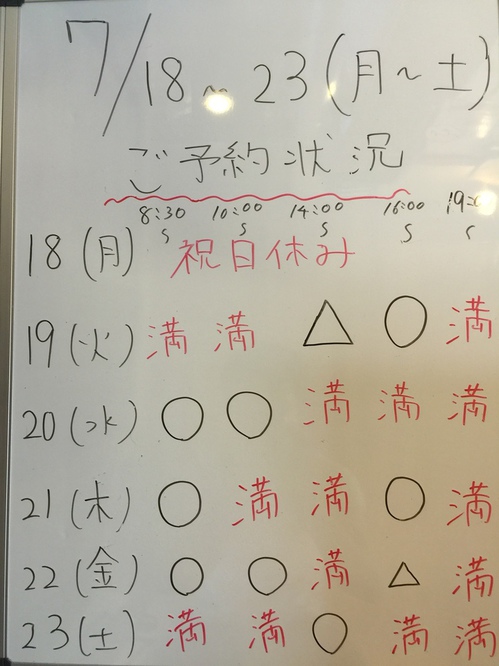 7/18~23(月~土)
ご予約状況
8:30~ 10:00~ 14:00~ 16:00~ 19:0
18(月) 祝日休み
19(火) 満 満 △ ○ 満
20(水) ○ ○ 満 満 満
21(木) ○ 満 満 ○ 満
22(金) ○ ○ 満 △ 満
23(土) 満 満 ○ 満 満